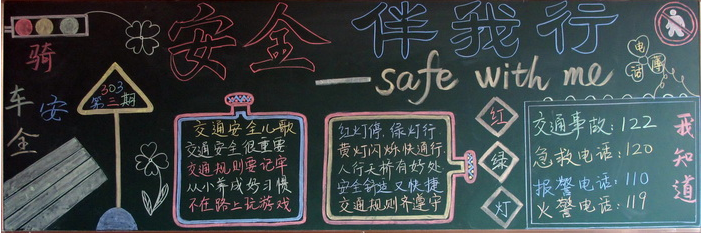 安全伴我行
safe with me
骑车安全
303
第三期
交通安全儿歌
交通安全很重要
交通规则要记牢
从小养成好习惯
不在路上玩游戏
红灯停 绿灯行
黄灯闪烁快通行
人行天桥有好处
安全舒适又快捷
交通规则齐遵守
红
绿
灯
电话
交通事故: 122
急救电话: 120
报警电话: 110
火警电话: 119
我知道